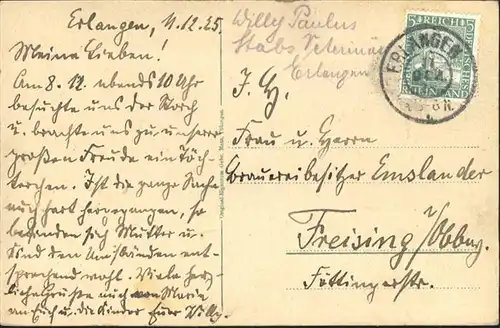 Erlangen, 11.12.25.
Meine Lieben!
Am 8. 12. abends 10 Uhr
besuchte uns der Storch
u. brachte uns zu unserer
großen Freude ein Töch-
terchen. Ist die ganze Sache
auch hart hergegangen, so
befinden sich Mutter u.
Kind den Umständen ent-
sprechend wohl. Viele herz-
liche Grüße auch von Marie
an Euch u. die Kinder Euer Willy.
Willy Paulus
Stabs Veterinär
Erlangen
5 REICH 5
DEUTSCHES
RHEINLAND
ERLANGEN
11
DEZ
J. H.
Frau u. Herrn
Brauereibesitzer Emslander
Freising o/Obbay.
Föttingerstr.